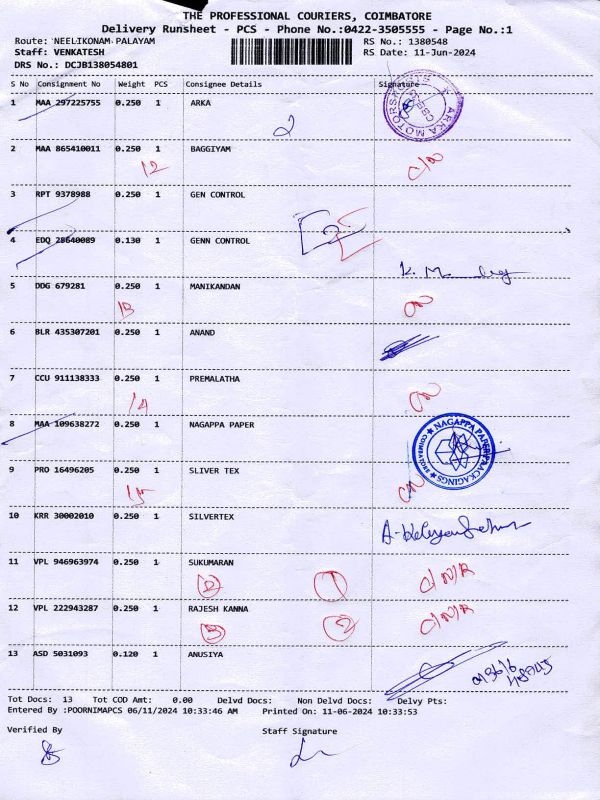 THE PROFESSIONAL COURIERS, COIMBATORE
Delivery Runsheet - PCS - Phone No.:0422-3505555 - Page No.:1
Route: NEELIKONAM PALAYAM RS No.: 1380548
Staff: VENKATESH RS Date: 11-Jun-2024
DRS No.: DCJB138054801
S No Consignment No Weight PCS Consignee Details Signature
1 MAA 297225755 0.250 1 ARKA
ARKA MOTORS
CBE-35
2
2 MAA 865410011 0.250 1 BAGGIYAM
12
3 RPT 9378988 0.250 1 GEN CONTROL
4 EDQ 28640089 0.130 1 GENN CONTROL
5 DDG 679281 0.250 1 MANIKANDAN
13
6 BLR 435307201 0.250 1 ANAND
7 CCU 911138333 0.250 1 PREMALATHA
14
8 MAA 109638272 0.250 1 NAGAPPA PAPER
NAGAPPA PAPER PACKAGINGS
9 PRO 16496205 0.250 1 SLIVER TEX
15
10 KRR 30002010 0.250 1 SILVERTEX
11 VPL 946963974 0.250 1 SUKUMARAN
1
12 VPL 222943287 0.250 1 RAJESH KANNA
3 2
13 ASD 5031093 0.120 1 ANUSIYA
Tot Docs: 13 Tot COD Amt: 0.00 Delvd Docs: Non Delvd Docs: Delvy Pts:
Entered By :POORNIMAPCS 06/11/2024 10:33:46 AM Printed On: 11-06-2024 10:33:53
Verified By Staff Signature